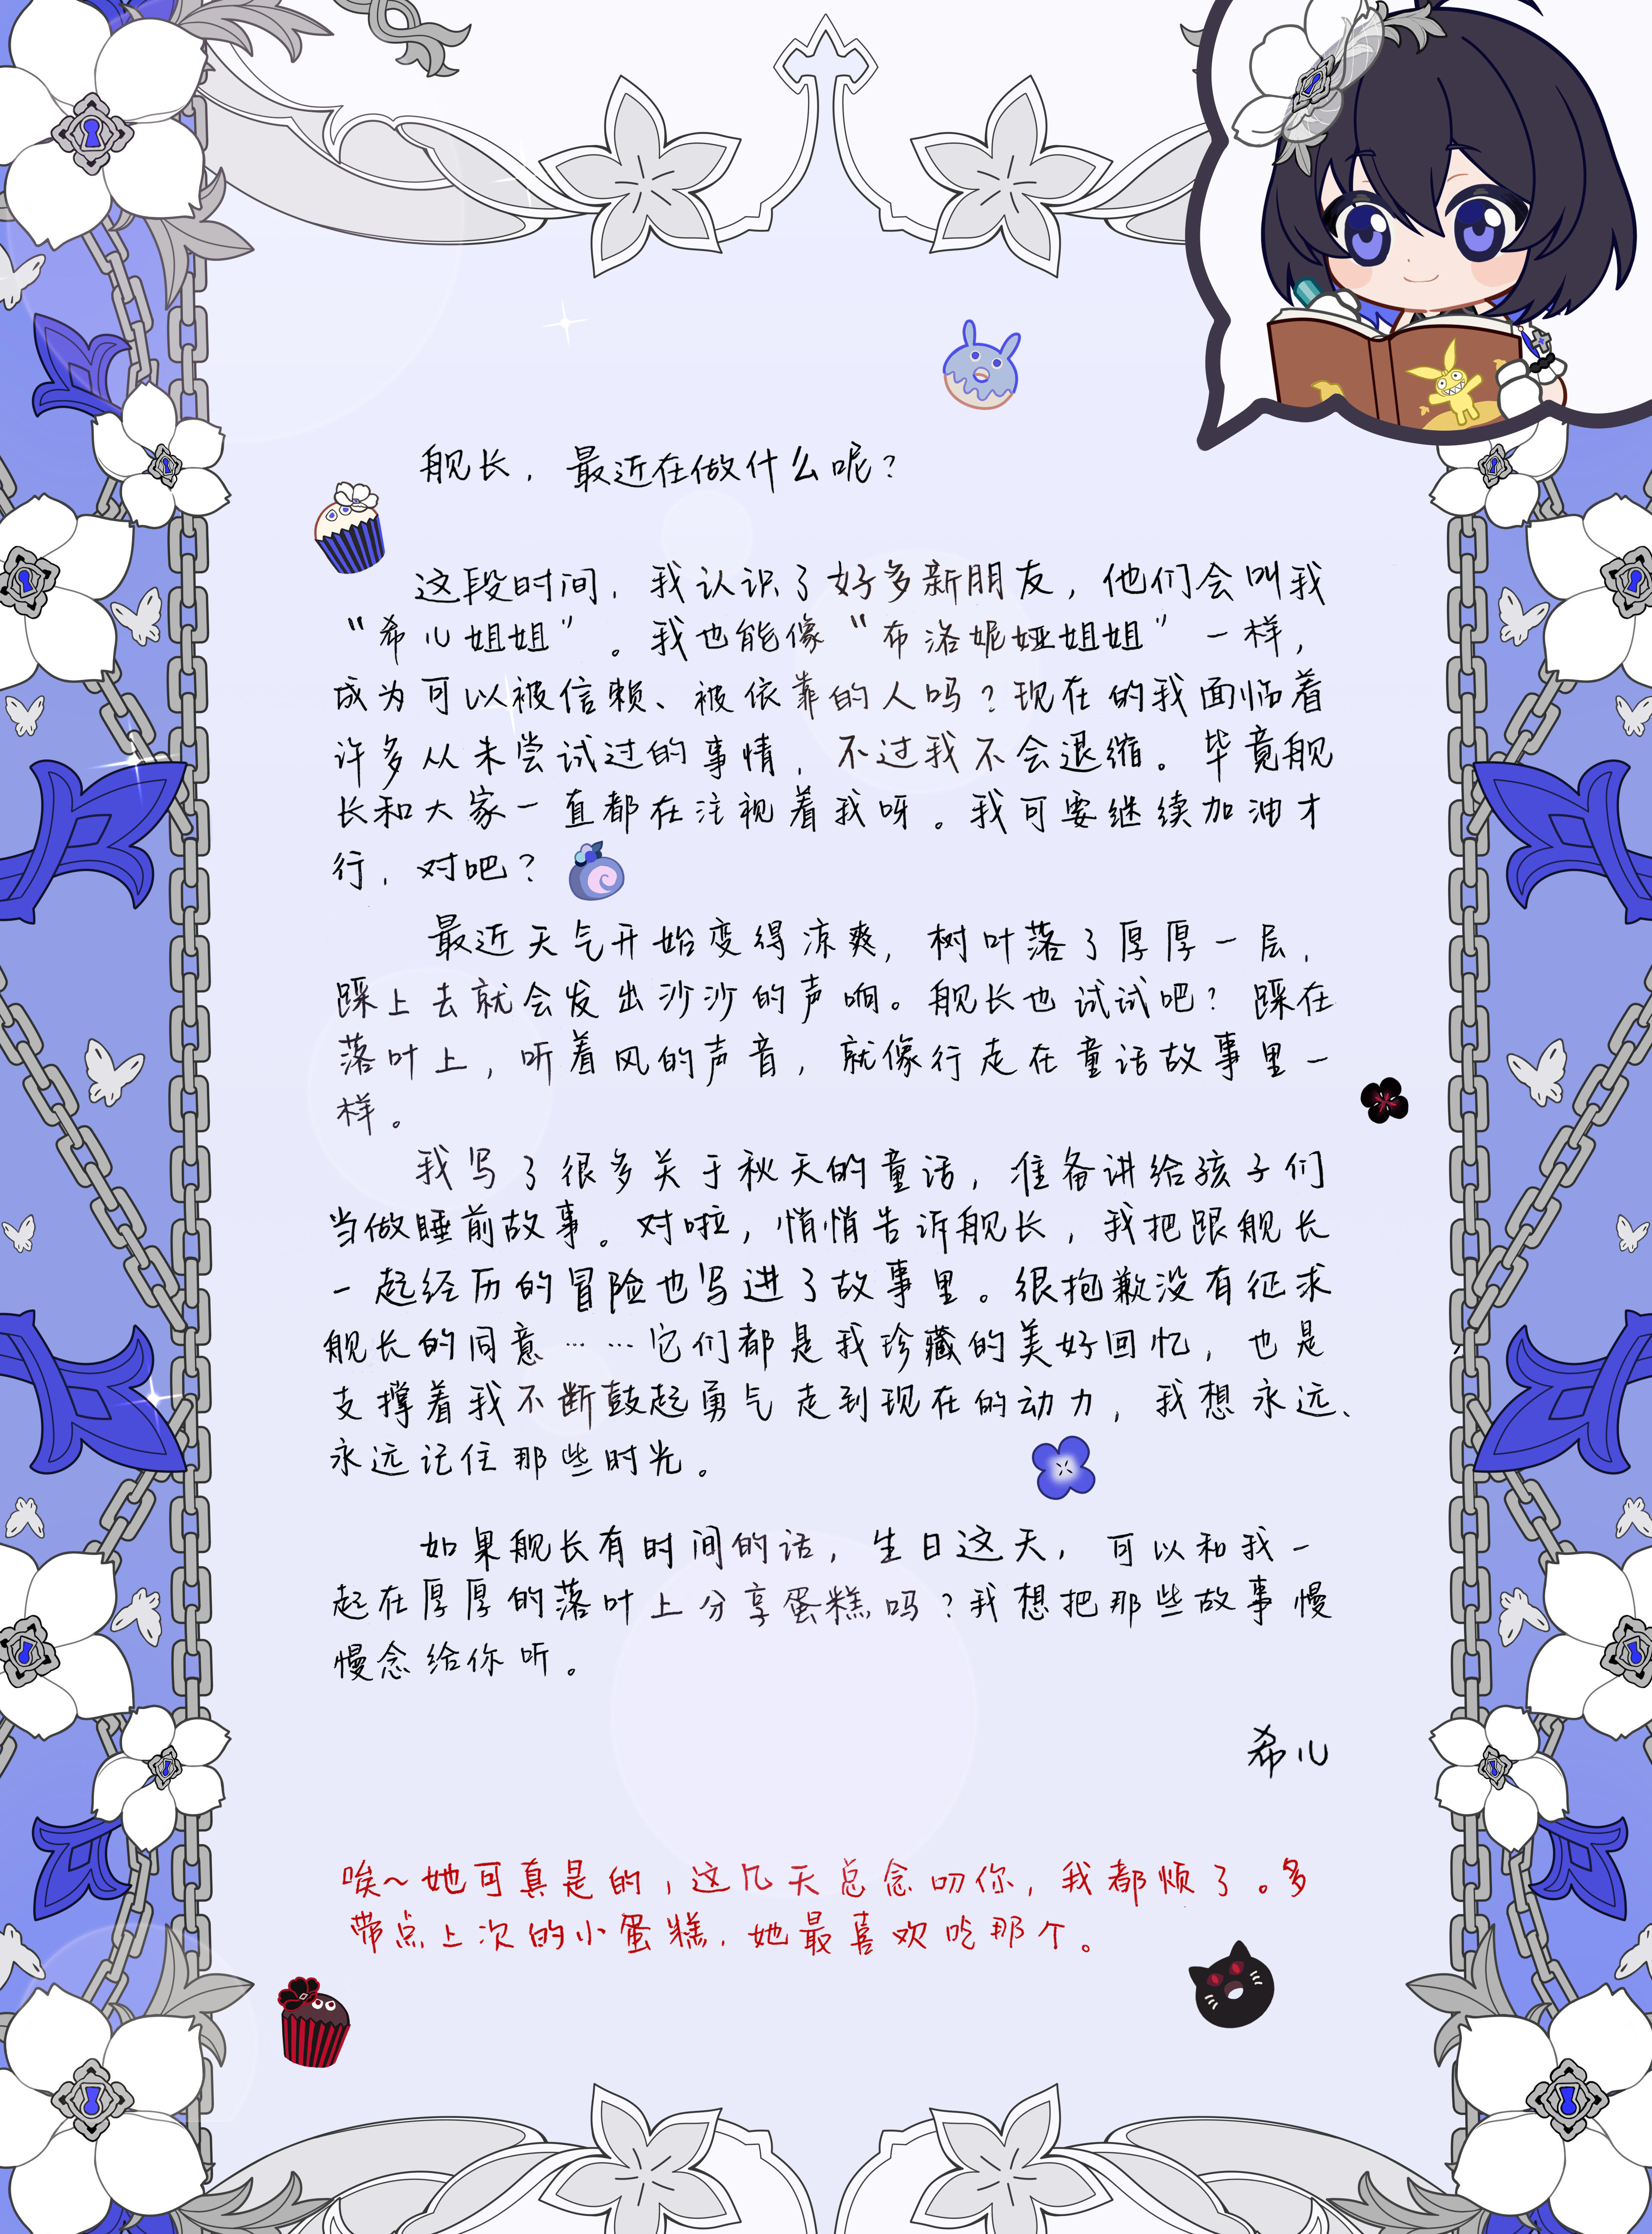 舰长，最近在做什么呢？
这段时间，我认识了好多新朋友，他们会叫我
“希儿姐姐”。我也能像“布洛妮娅姐姐”一样，
成为可以被信赖、被依靠的人吗？现在的我面临着
许多从未尝试过的事情，不过我不会退缩。毕竟舰
长和大家一直都在注视着我呀。我可要继续加油才
行，对吧？
最近天气开始变得凉爽，树叶落了厚厚一层，
踩上去就会发出沙沙的声响。舰长也试试吧？踩在
落叶上，听着风的声音，就像行走在童话故事里一
样。
我写了很多关于秋天的童话，准备讲给孩子们
当做睡前故事。对啦，悄悄告诉舰长，我把跟舰长
一起经历的冒险也写进了故事里。很抱歉没有征求
舰长的同意……它们都是我珍藏的美好回忆，也是
支撑着我不断鼓起勇气走到现在的动力，我想永远、
永远记住那些时光。
如果舰长有时间的话，生日这天，可以和我一
起在厚厚的落叶上分享蛋糕吗？我想把那些故事慢
慢念给你听。
希儿
唉～她可真是的，这几天总念叨你，我都烦了。多
带点上次的小蛋糕，她最喜欢吃那个。